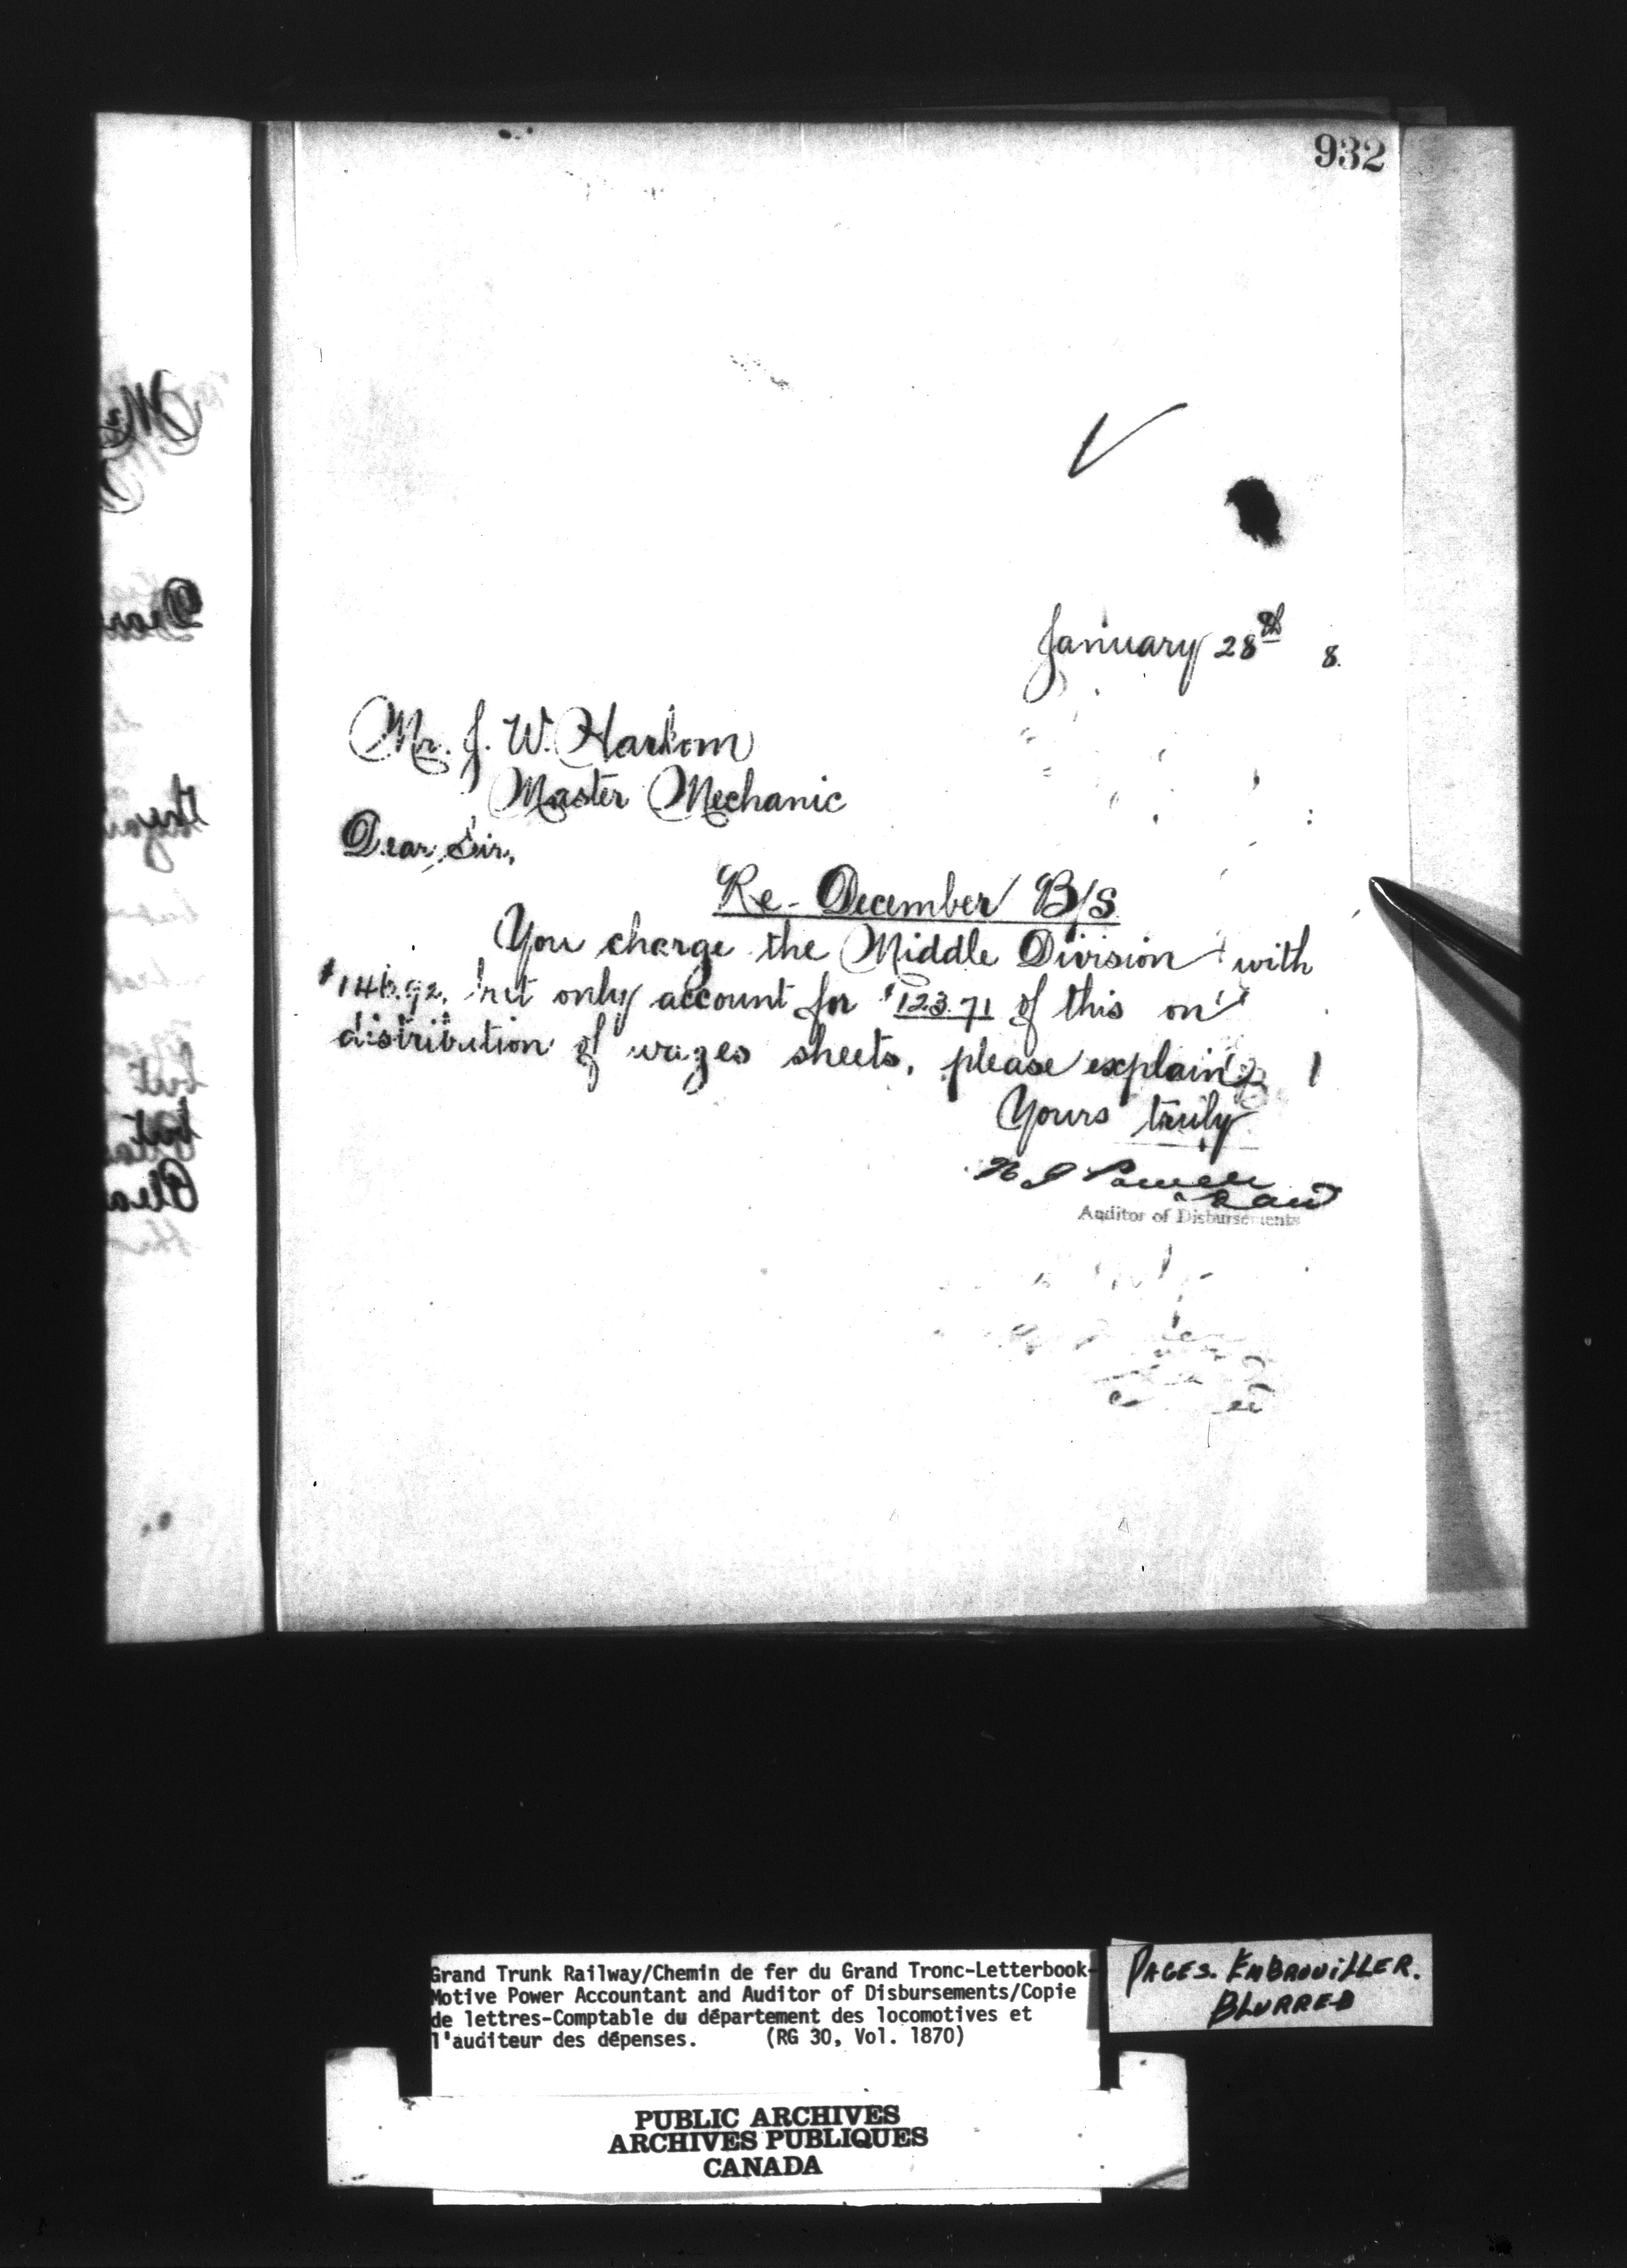 932
January 28th 8.
Mr. J. W. Harkom
Master Mechanic
Dear Sir,
Re- December B/S
You charge the Middle Division with
but only account for $123.71 of this on
distribution of wages sheets, please explain
Yours truly
Auditor of Disbursements
Grand Trunk Railway/Chemin de fer du Grand Tronc-Letterbook-
Motive Power Accountant and Auditor of Disbursements/Copie
de lettres-Comptable du département des locomotives et
l'auditeur des dépenses. (RG 30, Vol. 1870)
PAGES. EMBROUILLER.
BLURRED
PUBLIC ARCHIVES
ARCHIVES PUBLIQUES
CANADA